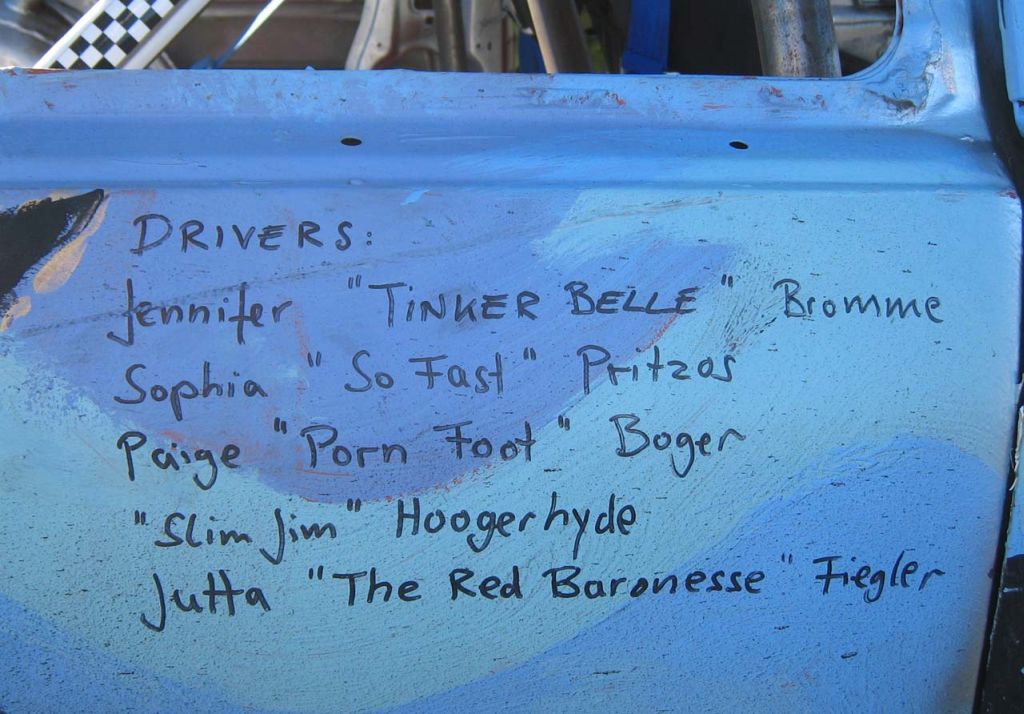 DRIVERS:
Jennifer "TINKER BELLE" Bromme
Sophia "So Fast" Pritzos
Paige "Porn Foot" Boger
"Slim Jim" Hoogerhyde
Jutta "The Red Baronesse" Fiegler